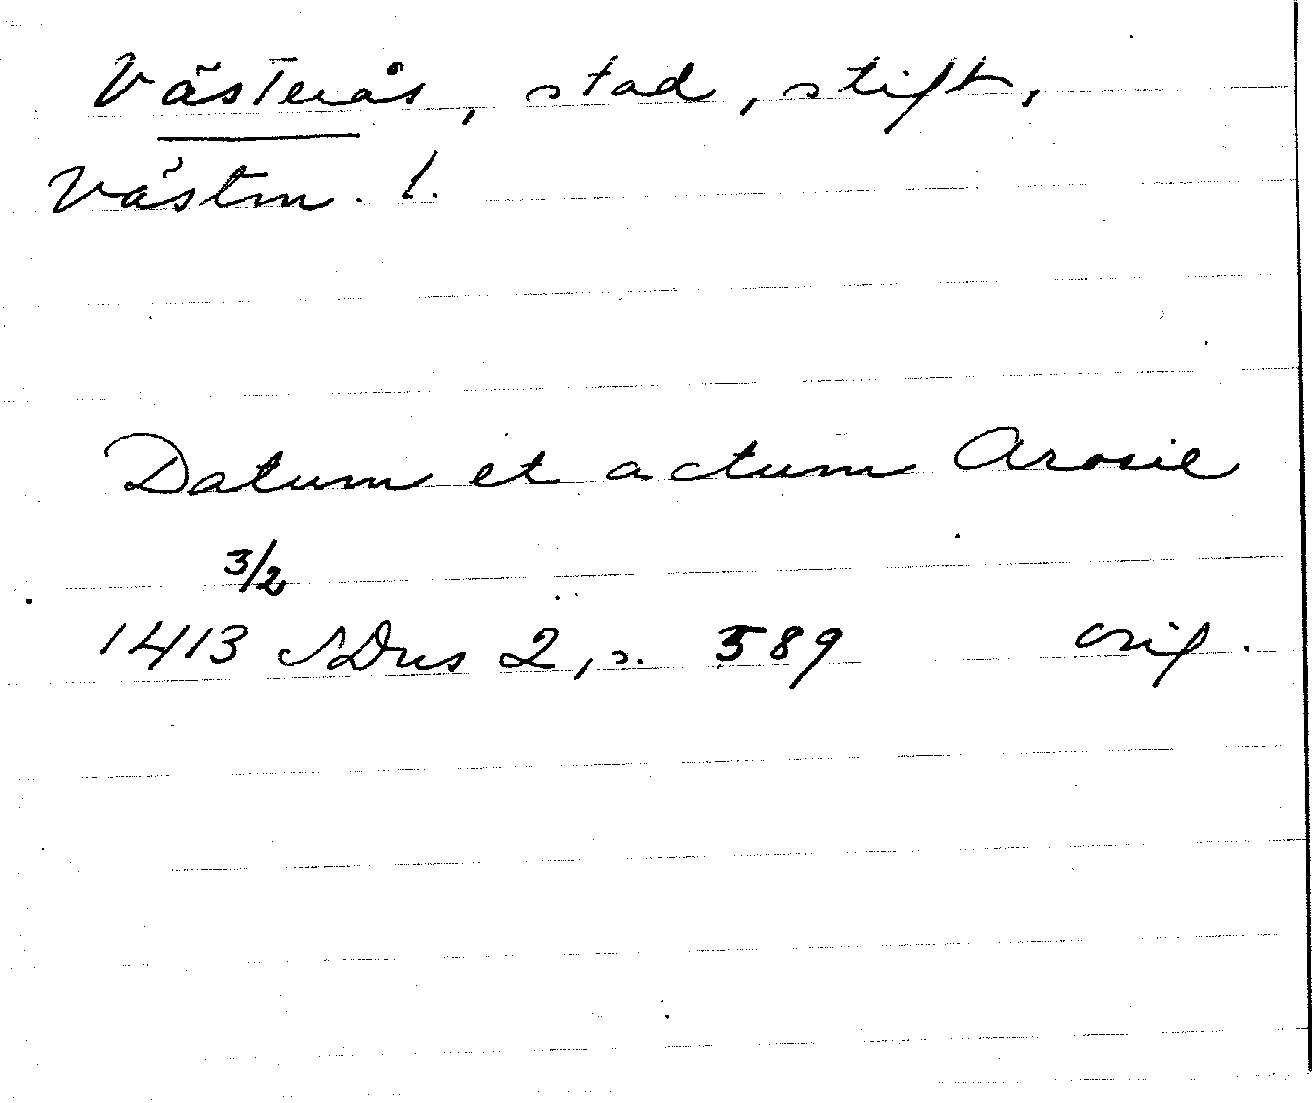 Västerås, stad, stift,
Västm. l.
Datum et actum Arosie
3/2
1413 SDns 2, s. 589 orig.